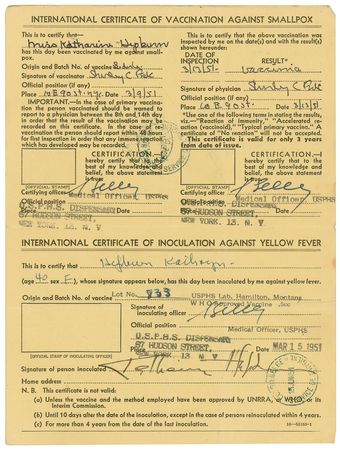 INTERNATIONAL CERTIFICATE OF VACCINATION AGAINST SMALLPOX
This is to certify that
Miss Katharine Hepburn
has this day been vaccinated by me against smallpox.
Origin and Batch No. of vaccine
Signature of vaccinator
Official position (if any)
Place Date 3/9/51
IMPORTANT.—In the case of primary vaccination the person vaccinated should be warned to report to a physician between the 8th and 14th day in order that the result of the vaccination may be recorded on this certificate. In the case of revaccination the person should report within 48 hours for first inspection and any immune reaction which has developed may be recorded.
CERTIFICATION—I hereby certify that to the best of my knowledge and belief, the above signature is authentic.
(OFFICIAL STAMP)
Certifying officer
Official position Medical Officer, USPHS
Place Date
U.S.P.H.S. DISPENSARY
67 HUDSON STREET,
NEW YORK, 13, N. Y
This is to certify that the above vaccination was inspected by me on the date(s) and with the result(s) shown hereunder:
DATE OF INSPECTION RESULT*
3/13/51
Signature of physician
Official position (if any)
Place Date 3/13/51
*Use one of the following terms in stating the results, vis.—"Reaction of immunity," "Accelerated reaction (vaccinoid)," "Typical primary vaccinia." A certificate of "No reaction" will not be accepted.
This certificate is valid for only 3 years from date of issue.
CERTIFICATION—I hereby certify that to the best of my knowledge and belief, the above signature is authentic.
(OFFICIAL STAMP)
Certifying officer
Official position Medical Officer, USPHS
U.S.P.H.S. DISPENSARY
67 HUDSON STREET,
NEW YORK, 13, N. Y
INTERNATIONAL CERTIFICATE OF INOCULATION AGAINST YELLOW FEVER
This is to certify that Hepburn Kathryn
(age 40 sex F), whose signature appears below, has this day been inoculated by me against yellow fever.
Origin and Batch No. of vaccine Lot No. 833 USPHS Lab. Hamilton, Montana
WHO Approved Vaccine .5cc
Signature of inoculating officer
Official position Medical Officer, USPHS
U.S.P.H.S. DISPENSARY
67 HUDSON STREET,
13, N. Y
Place Date MAR 15 1951
(OFFICIAL STAMP OF INOCULATING OFFICER)
Signature of person inoculated
Home address
N. B. This certificate is not valid:
(a) Unless the vaccine and the method employed have been approved by UNRRA, or WHO Interim Commission.
(b) Until 10 days after the date of the inoculation, except in the case of persons reinoculated within 4 years.
(c) For more than 4 years from the date of the last inoculation.